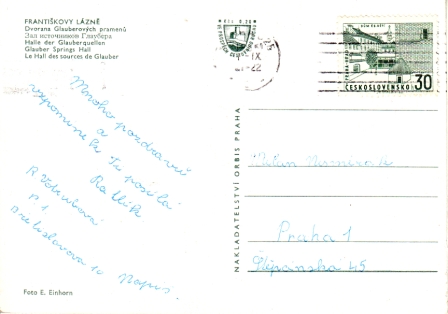 FRANTIŠKOVY LÁZNĚ
Dvorana Glauberových pramenů
Зал источников Глаубера
Halle der Glauberquellen
Glauber Springs Hall
Le Hall des sources de Glauber
Mnoho pozdravů
a
vzpomínku Ti posílá
R
P.1
Bratislavova 10
Foto E. Einhorn
NAKLADATELSTVÍ ORBIS PRAHA
IX
22
ČESKOSLOVENSKO 30
Praha 1
Štěpánská 45